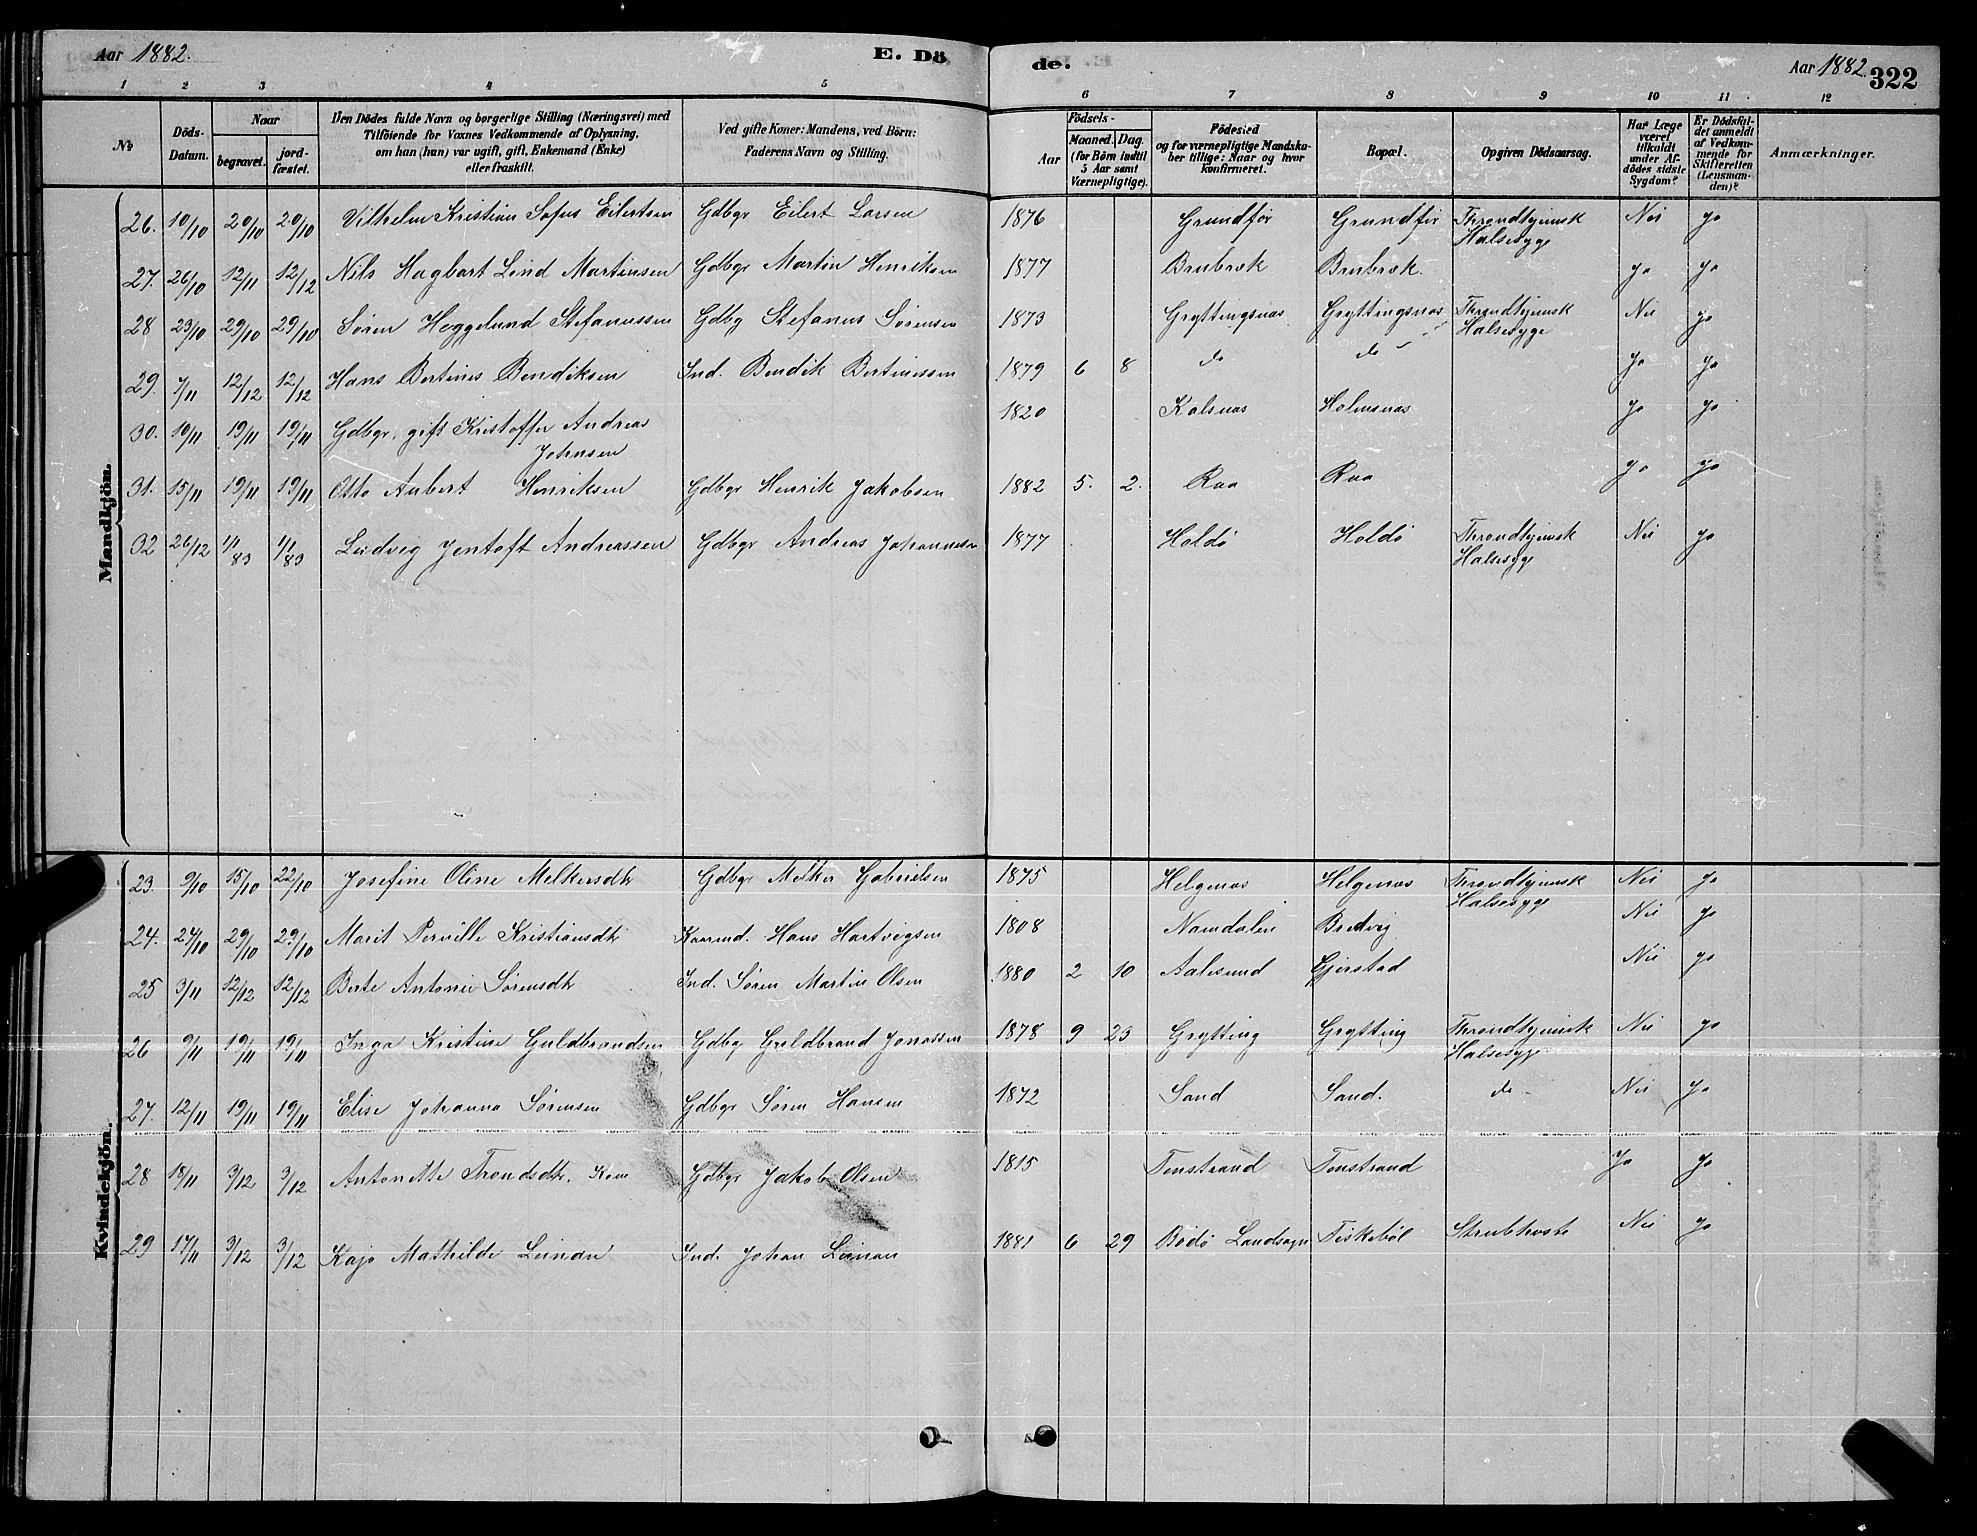 Aar 1882. E. Dö de. Aar 1882. 322
1 2 3 4 5 6 7 8 9 10 11 12
№ Döds-Datum. Naar begravet. jord-fæstet. Den Dödes fulde Navn og borgerlige Stilling (Næringsvei) med Tilföiende for Voxnes Vedkommende af Oplysning, om han (hun) var ugift, gift, Enkemand (Enke) eller fraskilt. Ved gifte Koner: Mandens, ved Börn: Faderens Navn og Stilling. Födsels- Aar Maaned. Dag. (for Börn indtil 5 Aar samt Værnepligtige). Födested og for værnepligtige Mandskaber tillige: Naar og hvor konfirmeret. Bopæl. Opgiven Dödsaarsag. Har Læge været tilkaldt under Afdödes sidste Sygdom? Er Dödsfaldet anmeldt af Vedkommende for Skifteretten (Lensmanden)? Anmærkninger.
Mandkjön.
26. 10/10 20/10 20/10 Vilhelm Kristian Sofus Eilertsen Gdbgr Eilert Larsen 1876 Grundfør Grundfør Throndhjemsk Halsesyge Nei ja
27. 26/10 12/11 12/12 Nils Hagbart Lind Martinsen Gdbgr Martin Henriksen 1877 Brubræk Brubræk. ja ja
28 23/10 29/10 29/10 Søren Heggelund Stefanussen Gdbg Stefanus Sørensen 1873 Gryttingsnæs Gryttingsnæs Throndhjemsk Halsesyge Nei ja
29. 7/11 12/12 12/12 Hans Bertines Bendiksen Ind. Bendik Bertinessen 1879 6 8 do do ja ja
30. 10/11 19/11 19/11 Gdbgr. gift Kristoffer Andreas Johnsen 1820 Kalsnæs Holmsnæs ja ja
31. 15/11 19/11 19/11 Otto Aubert Henriksen Gdbgr Henrik Jakobsen 1882 5. 2. Raa Raa ja ja
32 26/12 1/1 83 1/1 83 Ludvig Jentoft Andreassen Gdbgr Andreas Johannesen 1877 Holdø Holdø Throndhjemsk Halsesyge Nei ja
Kvindekjön.
23. 9/10 15/10 22/10 Josefine Oline Melkersdtr Gdbgr Melker Gabrielsen 1875 Helgenæs Helgenæs Throndhjemsk Halsesyge Nei ja
24. 24/10 29/10 29/10 Marit Perville Kristiansdtr Kaarmd. Hans Hartvigsen 1808 Namdalen Bredvig Nei ja
25 3/11 12/12 12/12 Berte Antonie Sørensdtr Ind. Søren Martin Olsen 1880 2 10 Aalesund Gjerstad Nei ja
26 9/11 19/11 19/11 Inga Kristine Guldbrandsen Gdbg Guldbrand Jonassen 1878 9 23 Grytting Grytting Throndhjemsk Halsesyge Nei ja
27. 12/11 19/11 19/11 Elise Johanna Sørensen Gdbgr Søren Hansen 1872 Sand Sand. do - Nei ja
28 18/11 3/12 3/12 Antonette Trondsdtr. Kone Gdbgr Jakob Olsen 1815 Tenstrand Tenstrand Ja ja
29 17/11 3/12 3/12 Kaja Mathilde Leinan Ind. Johan Leinan 1881 6 29 Bodø Landsogn Fiskebøl Strubhoste Nei ja